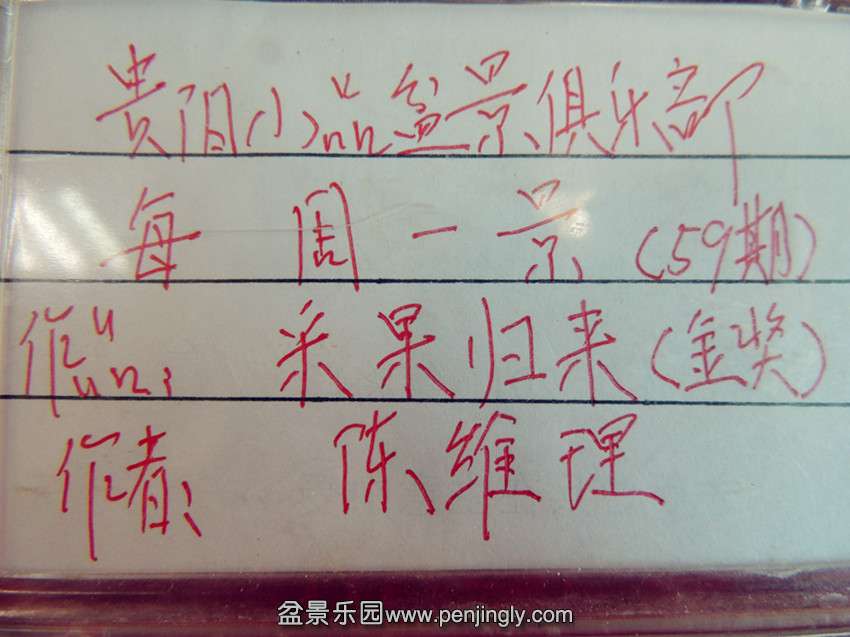 贵阳小品盆景俱乐部
每周一景(59期)
作品: 采果归来(金奖)
作者: 陈维理
盆景乐园www.penjingly.com